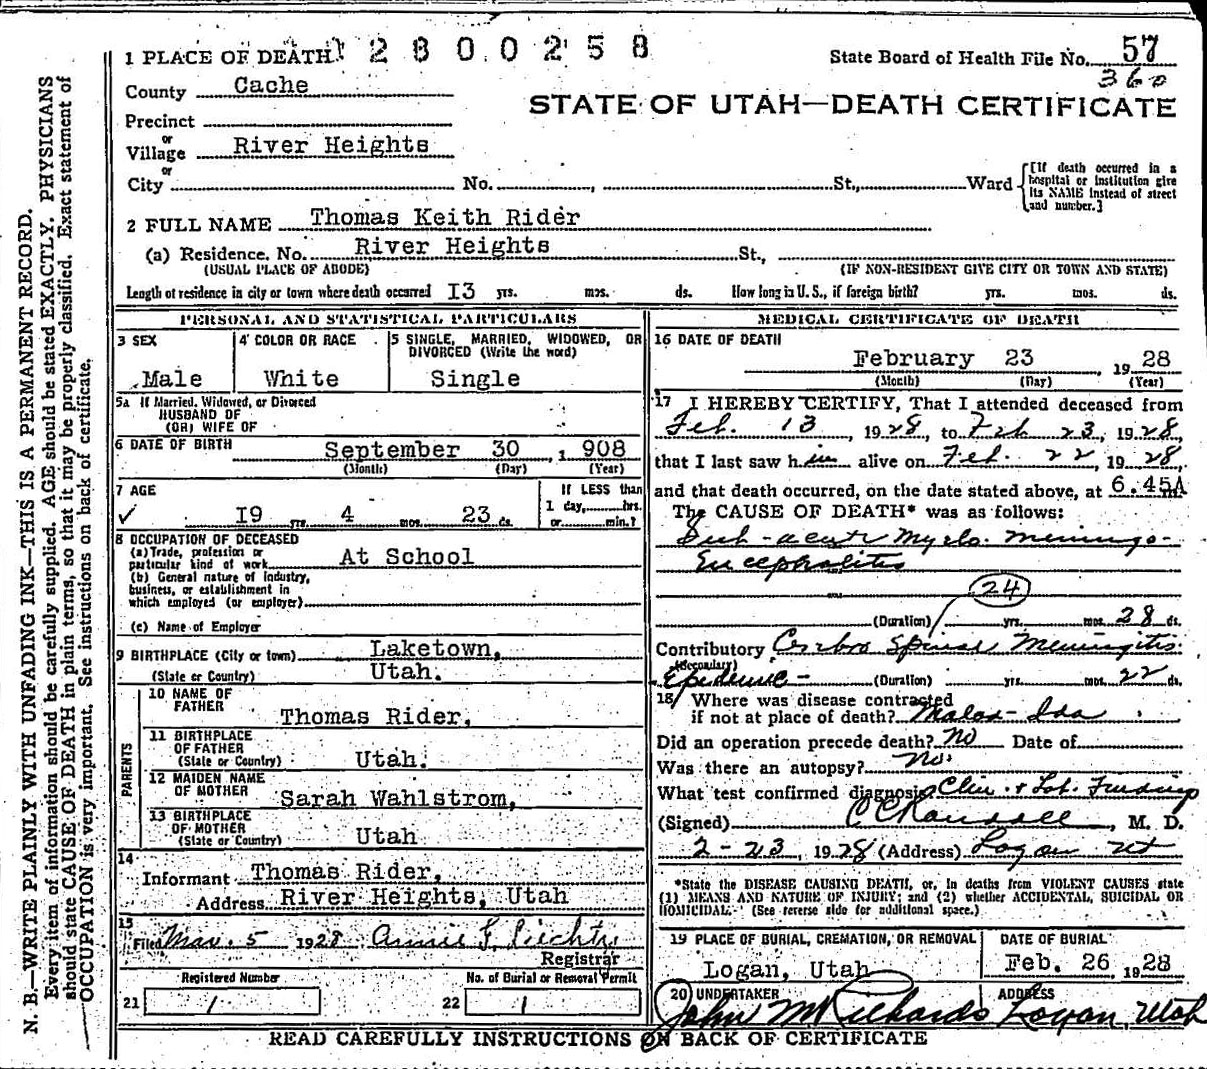 1 PLACE OF DEATH 2 8 0 0 2 5 8
State Board of Health File No. 57
360
County Cache
STATE OF UTAH—DEATH CERTIFICATE
Precinct
or
Village River Heights
or
City No. , St., Ward
[If death occurred in a hospital or institution give its NAME instead of street and number.]
2 FULL NAME Thomas Keith Rider
(a) Residence. No. River Heights St.,
(USUAL PLACE OF ABODE) (IF NON-RESIDENT GIVE CITY OR TOWN AND STATE)
Length of residence in city or town where death occurred I3 yrs. mos. ds. How long in U. S., if foreign birth? yrs. mos. ds.
PERSONAL AND STATISTICAL PARTICULARS
3 SEX
Male
4 COLOR OR RACE
White
5 SINGLE, MARRIED, WIDOWED, OR DIVORCED (Write the word)
Single
5a If Married, Widowed, or Divorced
HUSBAND OF
(OR) WIFE OF
6 DATE OF BIRTH September 30 , 1 908
(Month) (Day) (Year)
7 AGE
✓ I9 yrs. 4 mos. 23 ds.
If LESS than
1 day,........hrs.
or........min.?
8 OCCUPATION OF DECEASED
(a) Trade, profession or
particular kind of work At School
(b) General nature of industry,
business, or establishment in
which employed (or employer)
(c) Name of Employer
9 BIRTHPLACE (City or town) Laketown,
(State or Country) Utah.
PARENTS
10 NAME OF FATHER
Thomas Rider,
11 BIRTHPLACE OF FATHER
(State or Country) Utah.
12 MAIDEN NAME OF MOTHER
Sarah Wahlstrom,
13 BIRTHPLACE OF MOTHER
(State or Country) Utah
14
Informant Thomas Rider,
Address River Heights, Utah
15
Filed Mar. 5 1928 Annie
Registrar
Registered Number
21 1
No. of Burial or Removal Permit
22 1
MEDICAL CERTIFICATE OF DEATH
16 DATE OF DEATH
February 23 , 19 28
(Month) (Day) (Year)
17 I HEREBY CERTIFY, That I attended deceased from
Feb. 13, 1928, to Feb 23, 1928,
that I last saw him alive on Feb. 22, 1928,
and that death occurred, on the date stated above, at 6.45A m.
The CAUSE OF DEATH* was as follows:
Sub-acute Myelo-Meningo-
Encephalitis
24
(Duration) yrs. mos. 28 ds.
Contributory Cerebro Spinal Meningitis
(Secondary)
Epidemic — (Duration) yrs. mos. 22 ds.
18 Where was disease contracted
if not at place of death? Malad - Ida
Did an operation precede death? No Date of
Was there an autopsy? No.
What test confirmed diagnosis? Clin. + Lab. Findings
(Signed) , M. D.
2-23, 1928 (Address) Logan Ut
*State the DISEASE CAUSING DEATH, or, in deaths from VIOLENT CAUSES state
(1) MEANS AND NATURE OF INJURY; and (2) whether ACCIDENTAL, SUICIDAL OR
HOMICIDAL. (See reverse side for additional space.)
19 PLACE OF BURIAL, CREMATION, OR REMOVAL
Logan, Utah
DATE OF BURIAL
Feb. 26 , 1928
20 UNDERTAKER ADDRESS
John M Richards Logan, Utah
READ CAREFULLY INSTRUCTIONS ON BACK OF CERTIFICATE
N. B.—WRITE PLAINLY WITH UNFADING INK—THIS IS A PERMANENT RECORD.
Every item of information should be carefully supplied. AGE should be stated EXACTLY. PHYSICIANS
should state CAUSE OF DEATH in plain terms, so that it may be properly classified. Exact statement of
OCCUPATION is very important. See instructions on back of certificate.